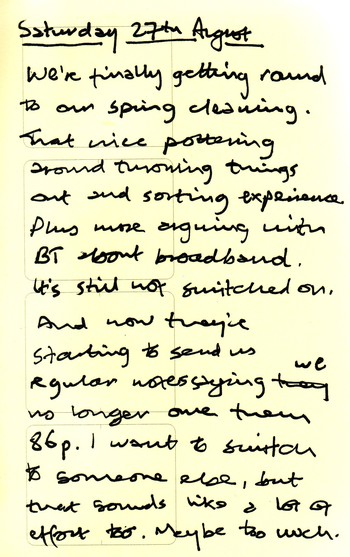 Saturday 27th August
We're finally getting round
to our spring cleaning.
That nice pottering
around throwing things
out and sorting experience.
Plus more arguing with
BT about broadband.
It's still not switched on.
And now they're
starting to send us
regular notes saying we
no longer owe them
86p. I want to switch
to someone else, but
that sounds like a lot of
effort too. Maybe too much.